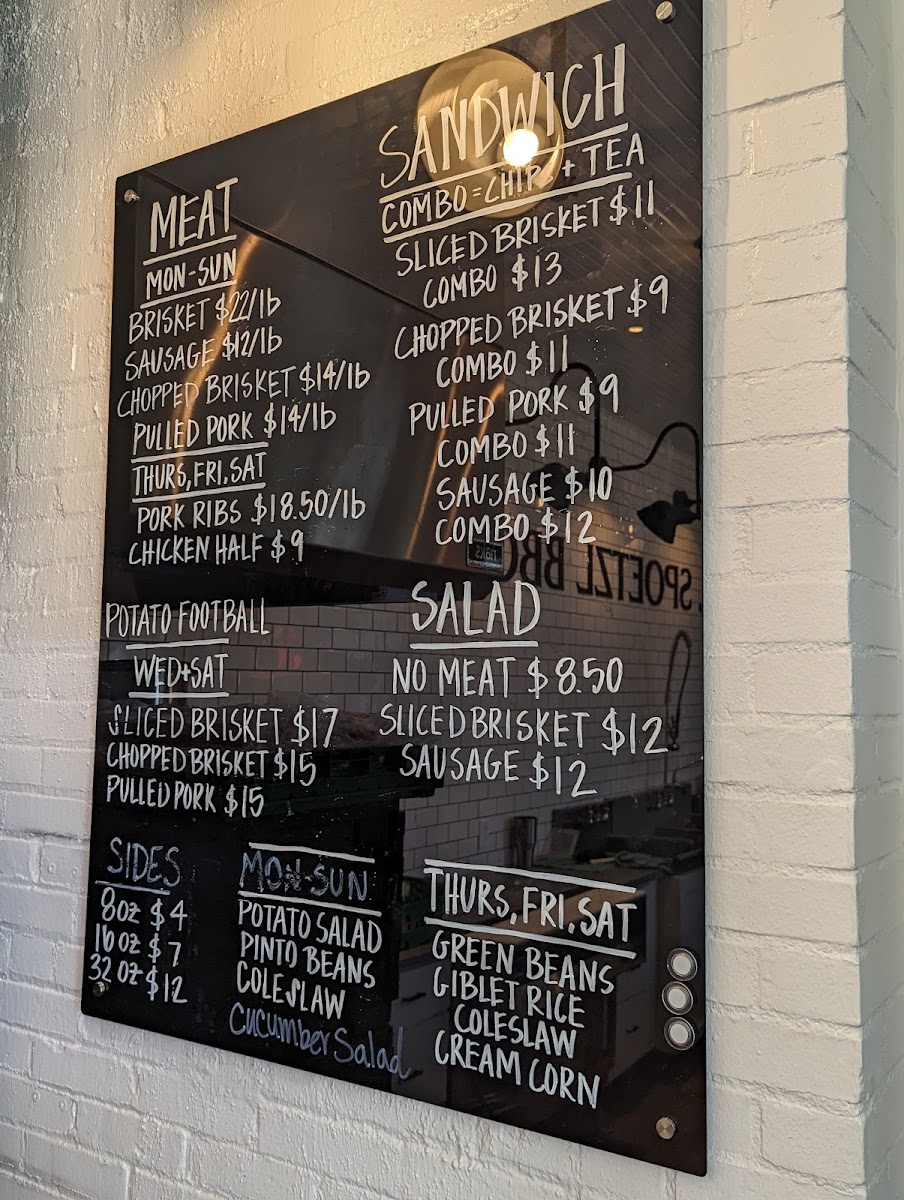 MEAT
MON-SUN
BRISKET $22/lb
SAUSAGE $12/lb
CHOPPED BRISKET $14/lb
PULLED PORK $14/lb
THURS, FRI, SAT
PORK RIBS $18.50/lb
CHICKEN HALF $9
POTATO FOOTBALL
WED+SAT
SLICED BRISKET $17
CHOPPED BRISKET $15
PULLED PORK $15
SANDWICH
COMBO = CHIPS + TEA
SLICED BRISKET $11
COMBO $13
CHOPPED BRISKET $9
COMBO $11
PULLED PORK $9
COMBO $11
SAUSAGE $10
COMBO $12
SPOETZL BBQ
SALAD
NO MEAT $8.50
SLICED BRISKET $12
SAUSAGE $12
SIDES
8oz $4
16oz $7
32oz $12
MON-SUN
POTATO SALAD
PINTO BEANS
COLESLAW
Cucumber Salad
THURS, FRI, SAT
GREEN BEANS
GIBLET RICE
COLESLAW
CREAM CORN